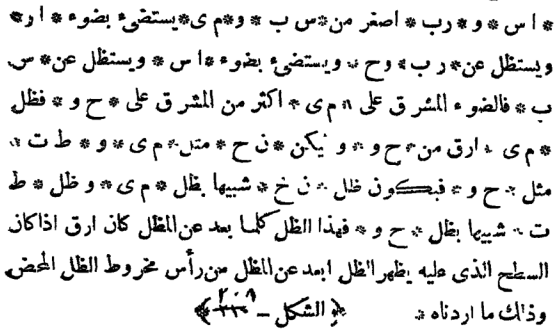 * ا س * و * رب * اصغر من * س ب * و * م ى * يستضىء بضوء * ا ر *
ويستظل عن * ر ب * وح * ويستضىء بضوء * ا س * ويستظل عن * س
ب * فالضوء المشرق على * م ى * اكثر من المشرق على * ح و * فظل
* م ى * ارق من * ح و * و ليكن * ن ح * مثل * م ى * و * ط ت *
مثل * ح و * فيكون ظل * ن خ * شبيها بظل * م ى * و ظل * ط
ت * شبيها بظل * ح و * فهذا الظل كلما بعد عن المظل كان ارق اذا كان
السطح الذى عليه يظهر الظل ابعد عن المظل من رأس مخروط الظل المحض
وذلك ما اردناه * ﴿ الشكل ـ ﴾